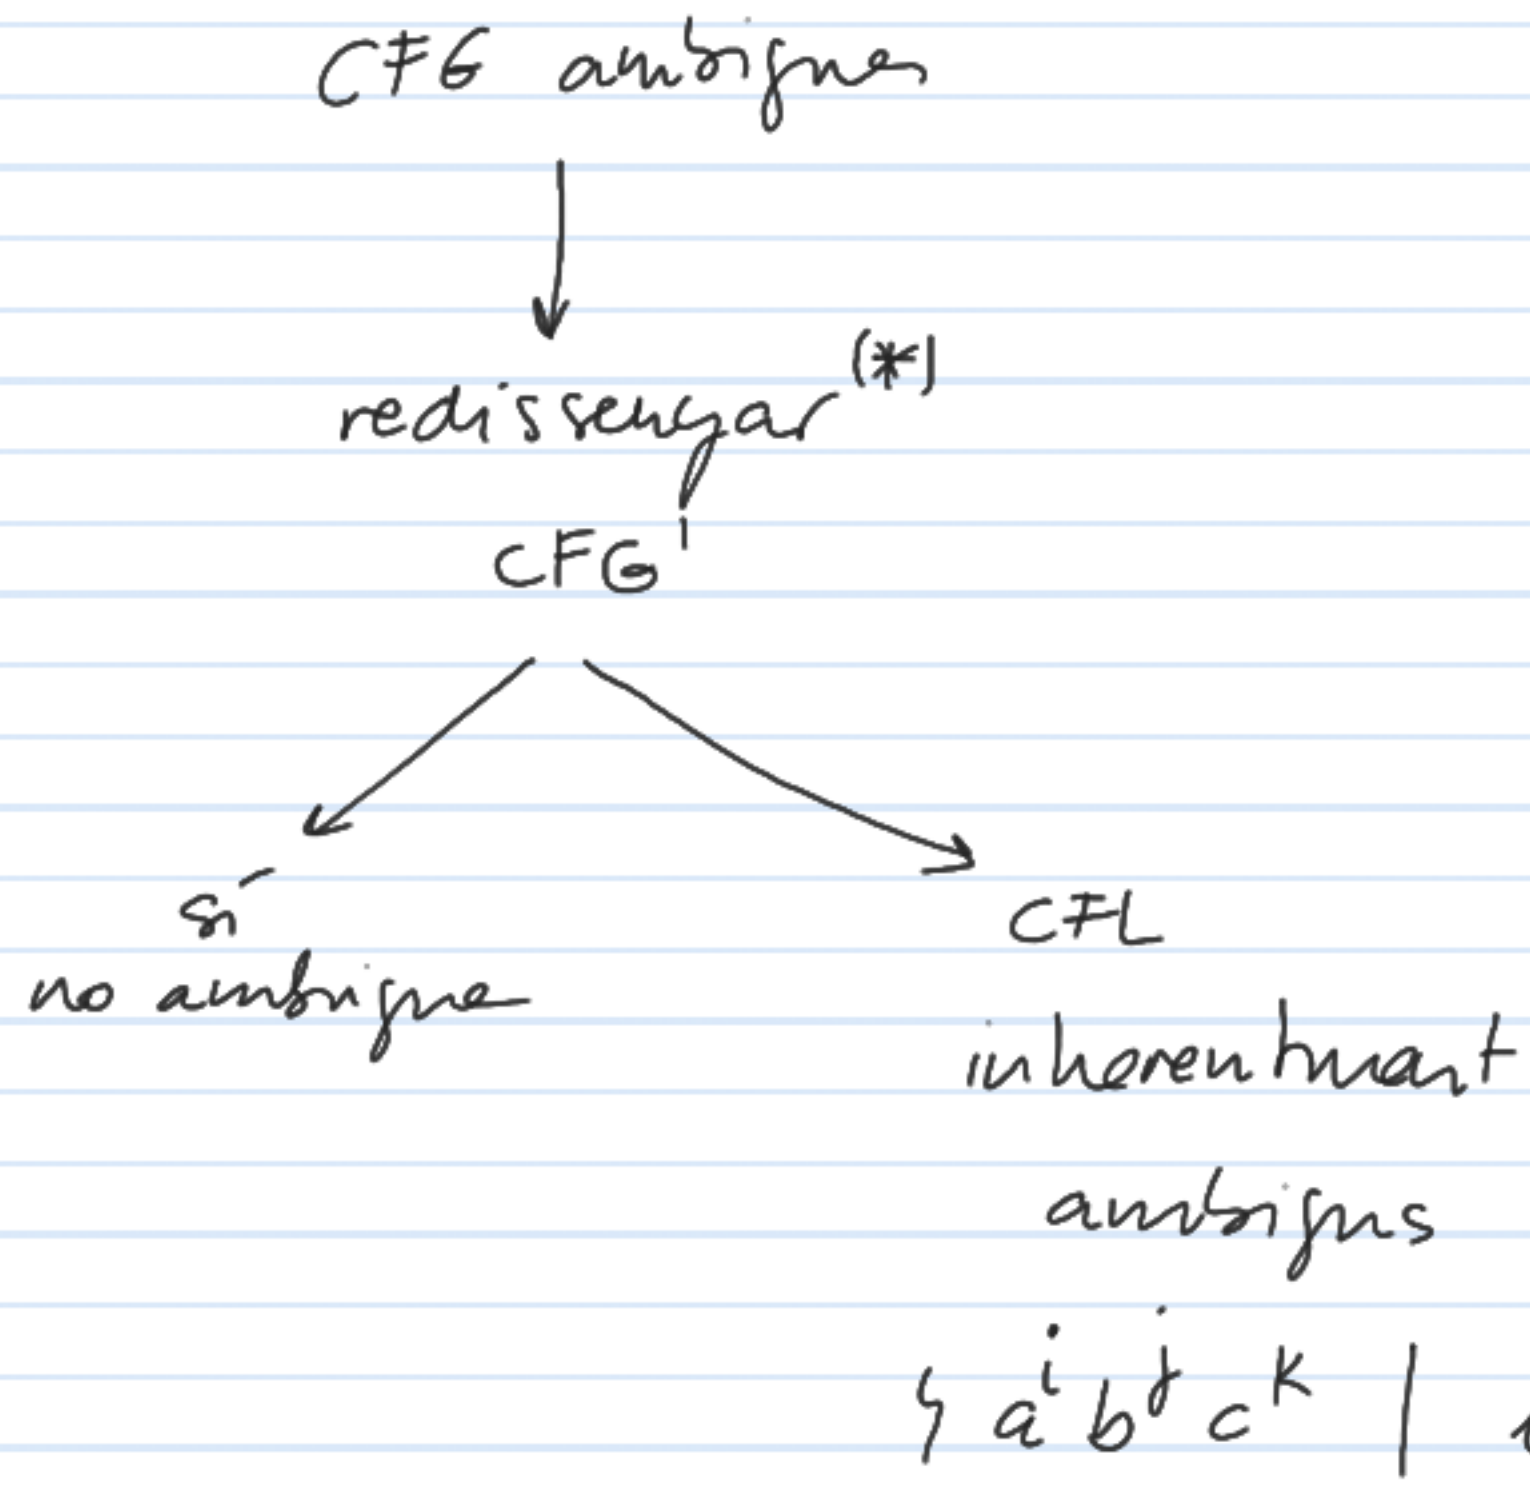 CFG ambigües
redissenyar (*)
CFG'
sí
no ambigue
CFL
inherentment
ambigus
{ a^i b^j c^k |